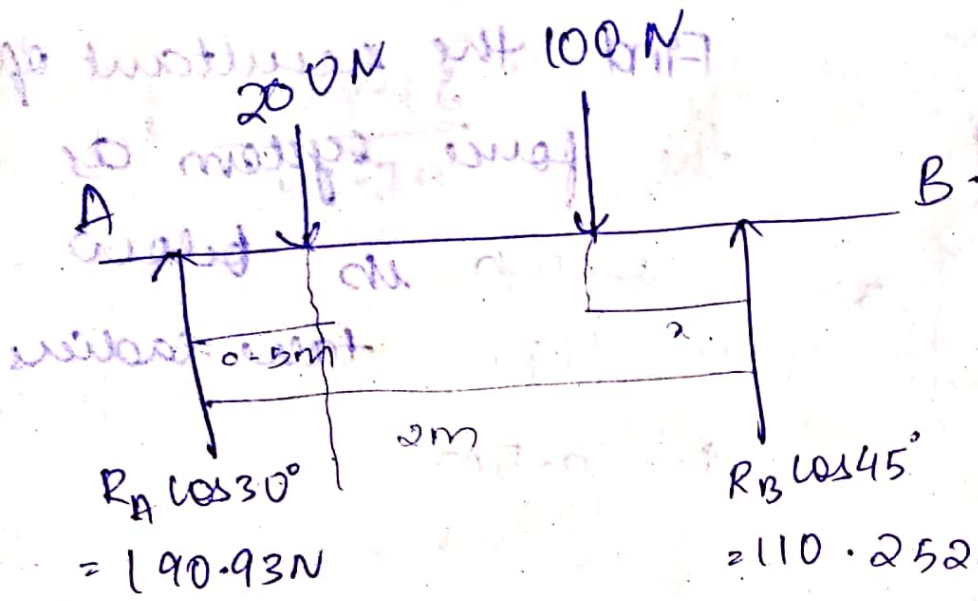 200N
100N
A
B
0.5m
2m
R_A cos30°
= 190.93N
R_B cos45°
=110.252